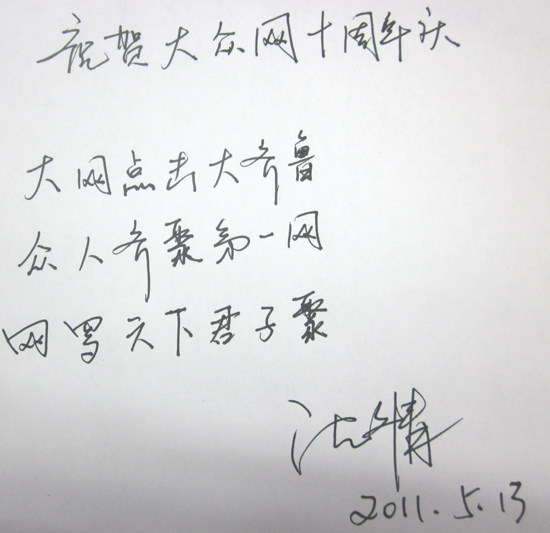 祝贺大众网十周年庆
大网点击大齐鲁
众人齐聚第一网
网罗天下君子聚
2011.5.13